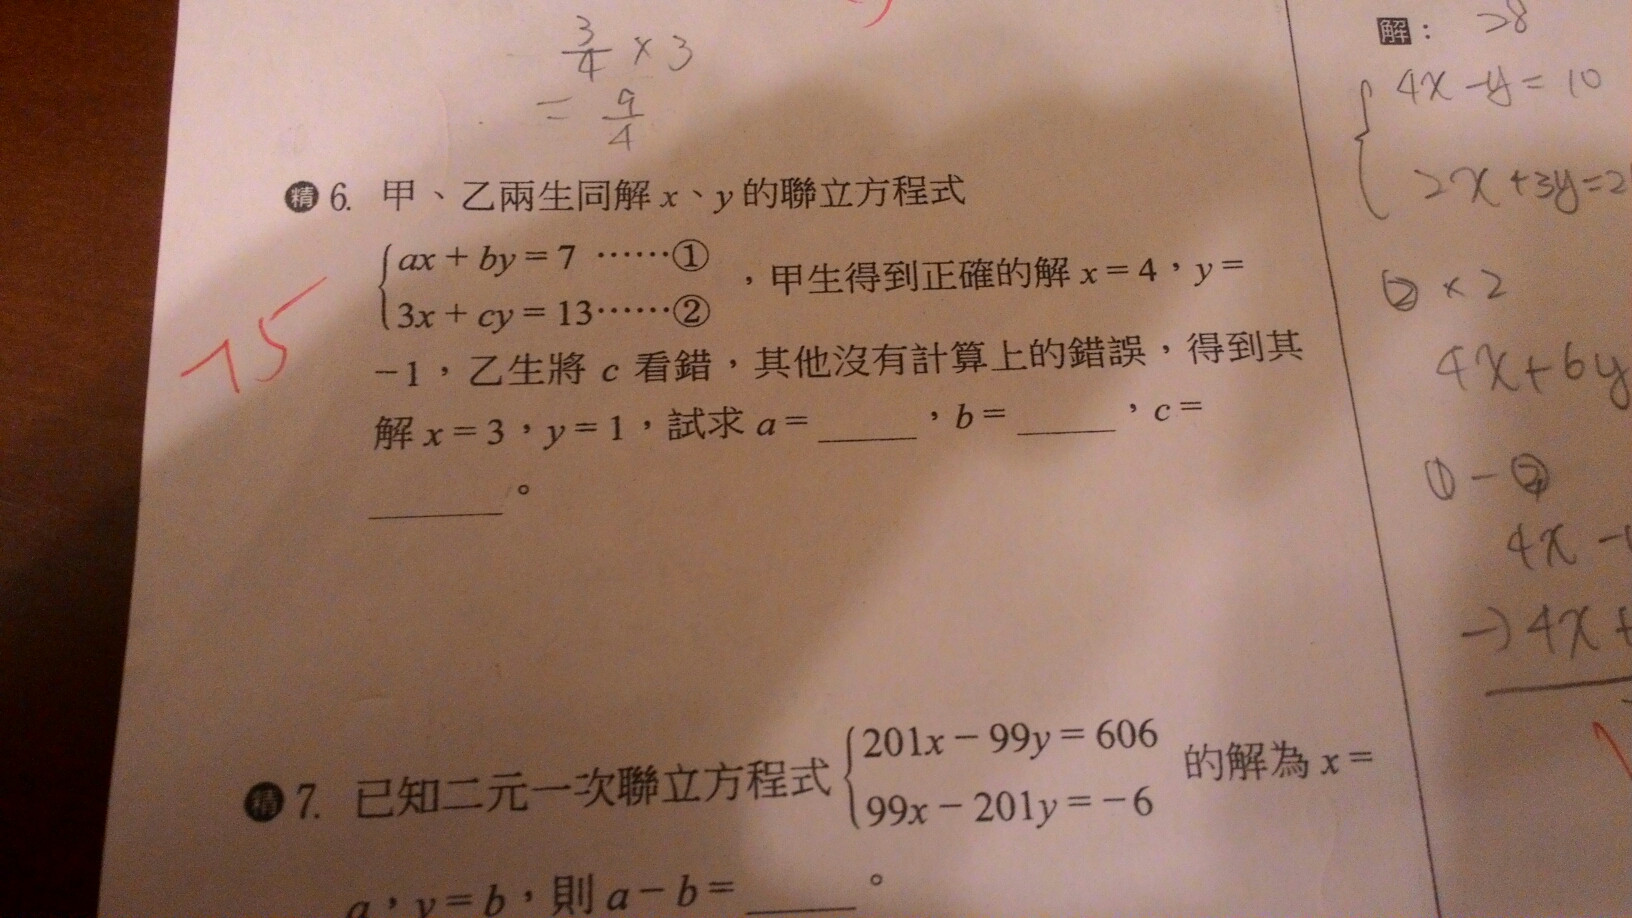 3/4 × 3
= 9/4
精 6. 甲、乙兩生同解 x、y 的聯立方程式
ax + by = 7 ……①
3x + cy = 13……②
，甲生得到正確的解 x = 4，y =
−1，乙生將 c 看錯，其他沒有計算上的錯誤，得到其
解 x = 3，y = 1，試求 a = _____，b = _____，c =
_____。
精 7. 已知二元一次聯立方程式
201x − 99y = 606
99x − 201y = −6
的解為 x =
a，y = b，則 a − b = _____。
解：
4x - y = 10
2x + 3y = 2
② × 2
4x + 6y
① - ②
4x -
-) 4x +